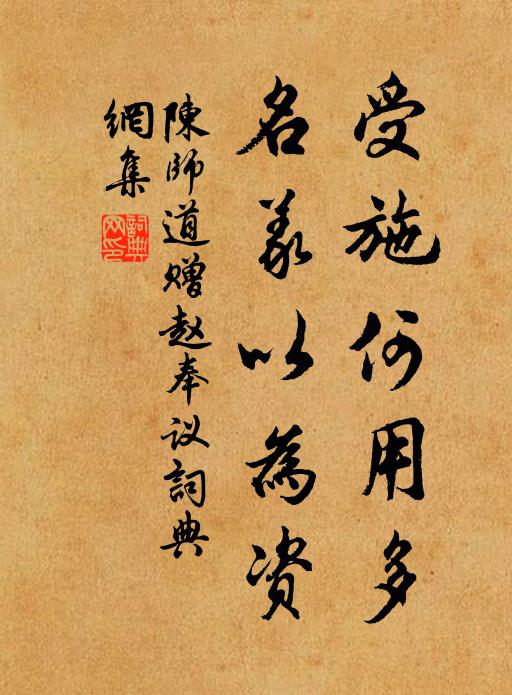 受施何用多
名義以為资
陳師道赠赵奉议詞典
網集
詞典
网印